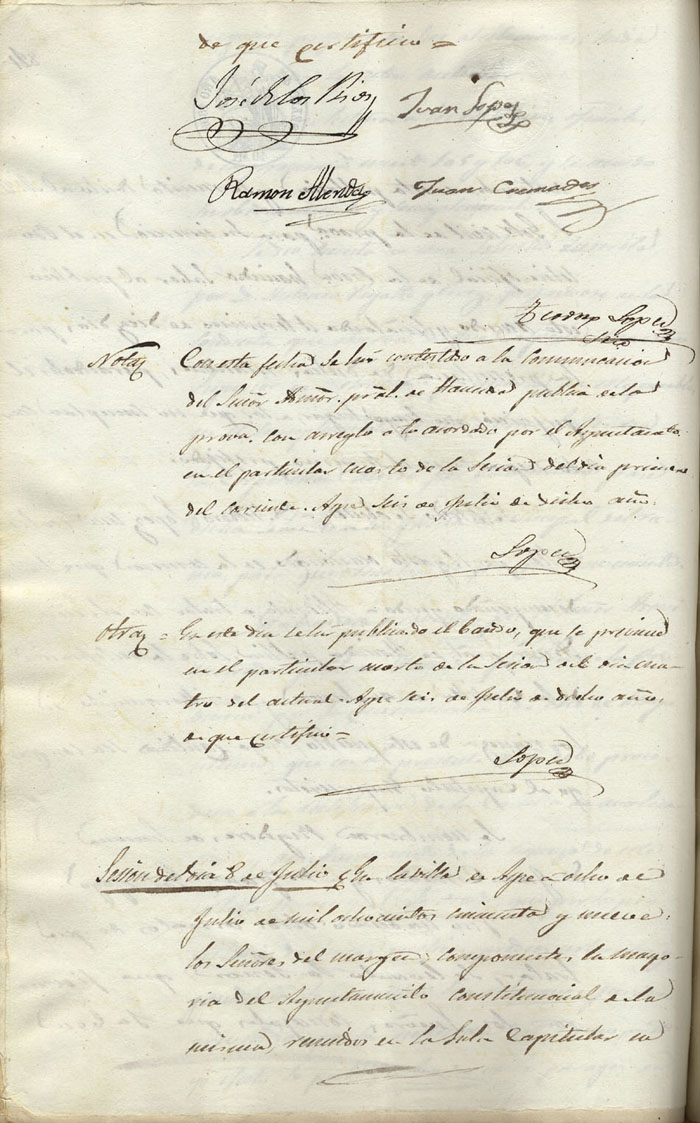 de que certifico =
José de los Rios Juan Lopez
Ramon Allende Juan Cremades
Lopez
Srio
Nota Con esta fecha se há contestado a la Comunicacion
del Señor Admor. pral. de Hacienda publica de la
prova. con arreglo a lo acordado por el Ayuntamto.
en el particular cuarto de la Sesion del dia primero
del corriente. Aspe seis de Julio de dicho año.
Lopez
Otra = En este dia se há publicado el bando, que se previene
en el particular cuarto de la Sesion del dia cua-
tro del actual. Aspe seis de Julio de dicho año,
de que certifico =
Lopez
Sesion del dia 8 de Julio En la villa de Aspe a ocho de
Julio de mil ochocientos cincuenta y nueve:
los Señores del margen componentes la mayo-
ria del Ayuntamiento constitucional de la
misma, reunidos en la Sala Capitular en